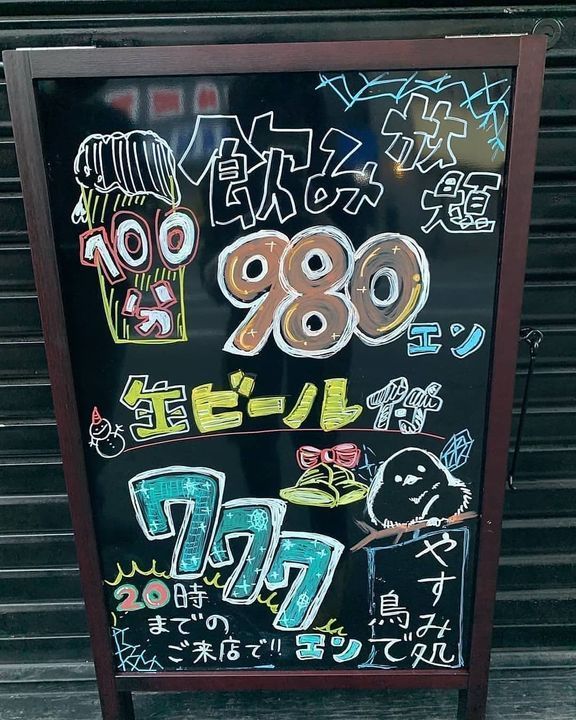 飲み放題
100分
980エン
生ビール付
777エン
20時
までの
ご来店で!!
やすみ処
鳥で